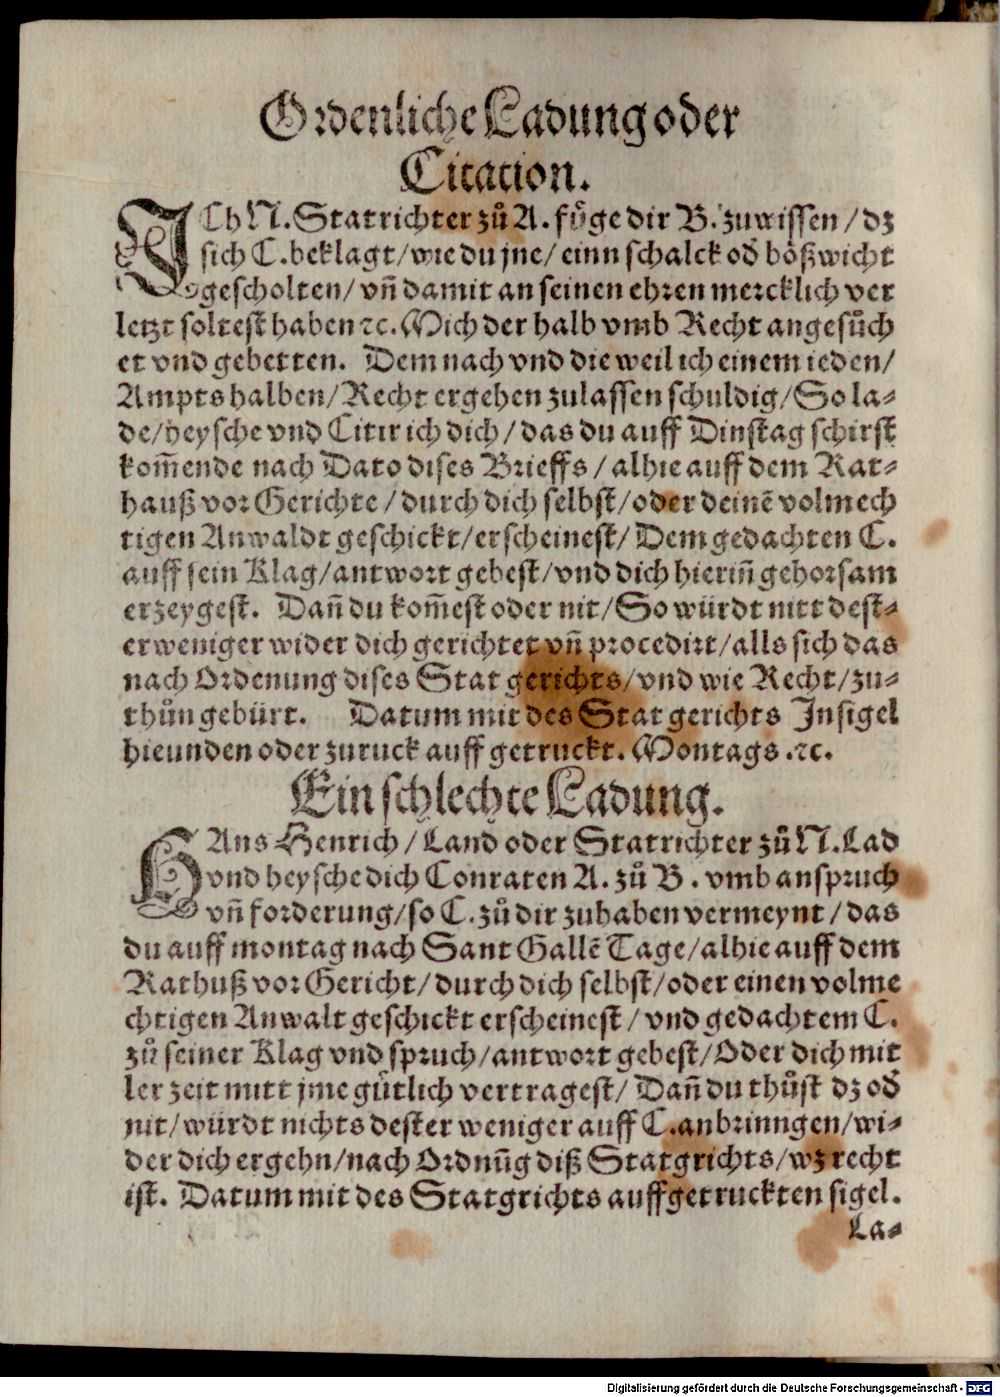 Ordenliche Ladung oder
Citation.
ICh N. Statrichter zů A. föge dir B. zuwissen / dz
sich C. beklagt / wie du jne / einn schalck oď bößwicht
gescholten / vñ damit an seinen ehren mercklich ver
letzt soltest haben ꝛc. Mich der halb vmb Recht angesůch
et vnd gebetten. Dem nach vnd die weil ich einem ieden /
Ampts halben / Recht ergehen zulassen schuldig / So la⸗
de / heysche vnd Citir ich dich / das du auff Dinstag schirst
kom̃ende nach Dato dises Brieffs / alhie auff dem Rat⸗
hauß vor Gerichte / durch dich selbst / oder deinẽ volmech
tigen Anwaldt geschickt / erscheinest / Dem gedachten C.
auff sein Klag / antwort gebest / vnd dich hierin̄ gehorsam
erzeygest. Dañ du kom̃est oder nit / So würdt nitt dest⸗
er weniger wider dich gerichtet vñ procedirt / alls sich das
nach Ordenung dises Stat gerichts / vnd wie Recht / zu⸗
thůn gebürt. Datum mit des Stat gerichts Insigel
hieunden oder zuruck auff getruckt. Montags .ꝛc.
Ein schlechte Ladung.
HAns Henrich / Land oder Statrichter zů N. Lad
vnd heysche dich Conraten A. zů B. vmb anspruch
vñ forderung / so C. zů dir zuhaben vermeynt / das
du auff montag nach Sant Gallẽ Tage / alhie auff dem
Rathuß vor Gericht / durch dich selbst / oder einen volme
chtigen Anwalt geschickt erscheinest / vnd gedachtem C.
zů seiner Klag vnd spruch / antwort gebest / Oder dich mit
ler zeit mitt jme gůtlich vertragest / Dañ du thůst dz oď
nit / würdt nichts dester weniger auff C. anbrinngen / wi⸗
der dich ergehn / nach Ordnũg diß Statgrichts / wz recht
ist. Datum mit des Statgrichts auffgetruckten sigel.
La⸗
Digitalisierung gefördert durch die Deutsche Forschungsgemeinschaft - DFG